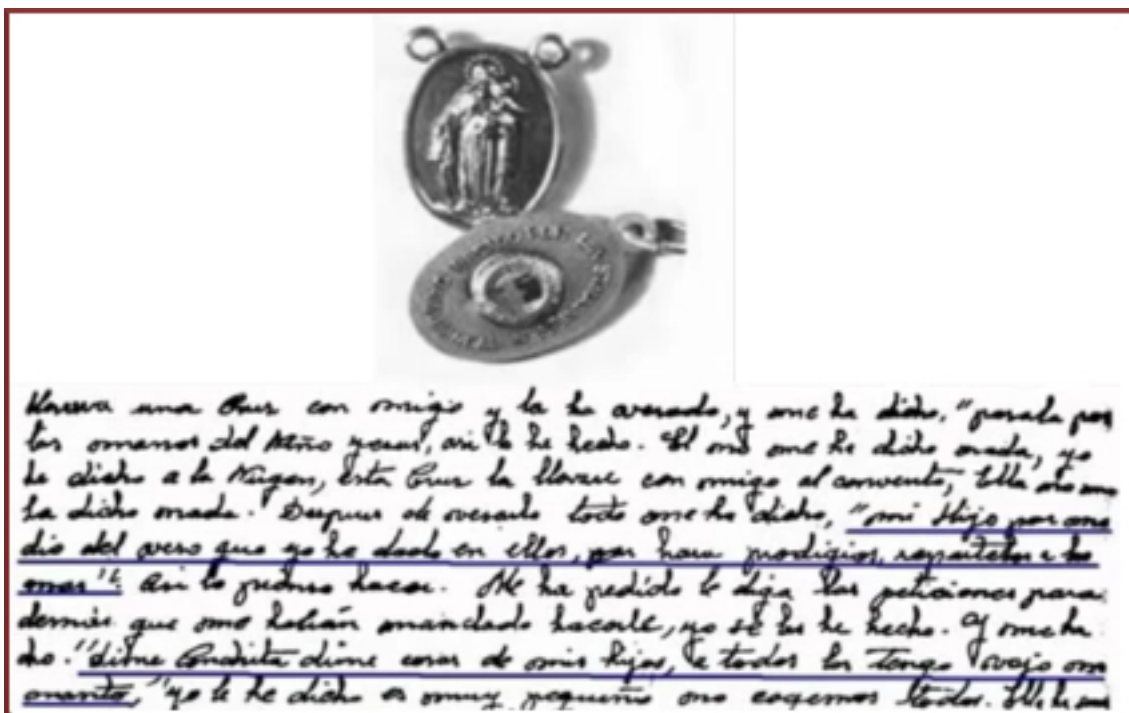 llevava una Cruz con migo y la ha vesado, y me ha dicho, "pasala por
las manos del Niño yesus, asi lo he hecho. El no me ha dicho nada, yo
he dicho a la Virgen, esta Cruz la llevare con migo al convento, Ella no me
ha dicho nada. Despues de vesarlo todo me ha dicho, "mi Hijo por me
dio del veso que yo he dado en ellos, hara prodigios, repartelos a los
mas". Asi lo pienso hacer. Me ha pedido le diga las peticiones para
demás que me habían mandado hacerle, yo se las he hecho. Y me ha
do. "dime Conchita dime cosas de mis hijos, a todos los tengo vajo mi
manto," yo le he dicho es muy pequeño no cogemos todos. Ella